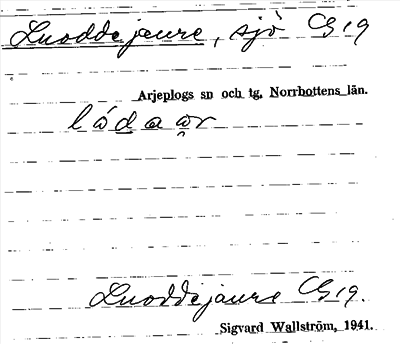 Luoddejaure, sjö C 19
Arjeplogs sn och tg. Norrbottens län.
lȯ́daar
Luoddejaure C 19.
Sigvard Wallström, 1941.